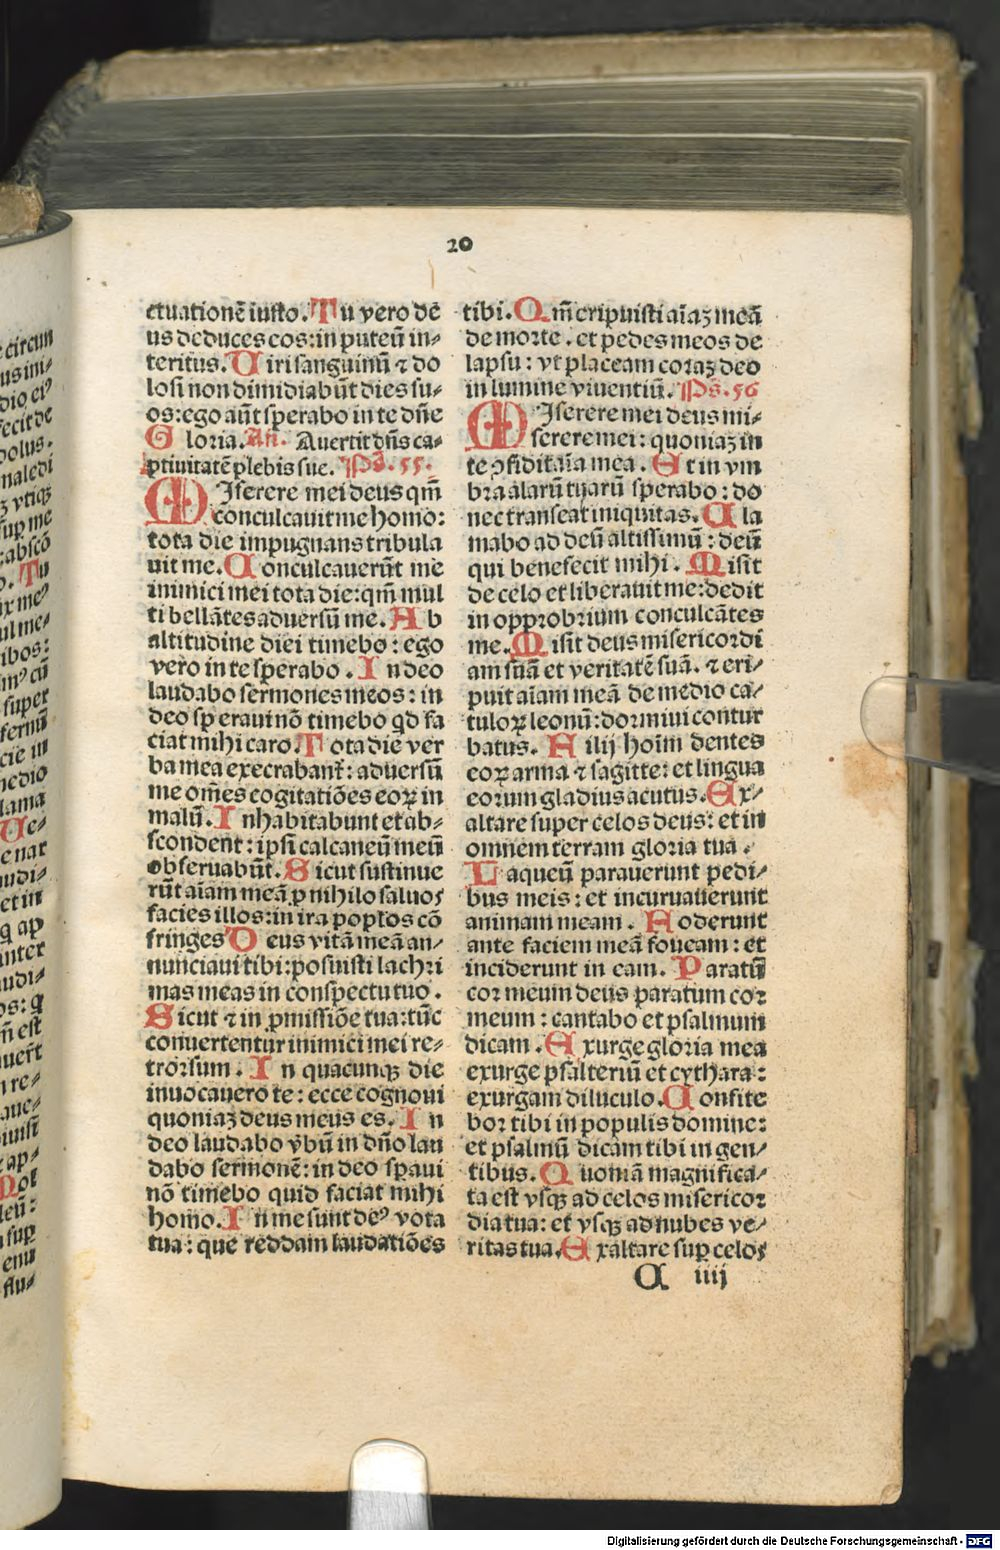 20
ctuationē iusto. Tu vero de
us deduces eos: in puteū in⸗
teritus. Uiri sanguinū ⁊ do
losi non dimidiabūt dies su⸗
os: ego aūt sperabo in te dn̄e
Gloria. An̄. Auertit dn̄s ca⸗
ptiuitatē plebis sue. Ps. 55.
MIserere mei deus qm̄
conculcauit me homo:
tota die impugnans tribula
uit me. Conculcauerūt me
inimici mei tota die: qm̄ mul
ti bellātes aduersū me. Ab
altitudine diei timebo: ego
vero in te sperabo. In deo
laudabo sermones meos: in
deo speraui nō timebo qd fa
ciat mihi caro. Tota die ver
ba mea execrabanť: aduersū
me om̄es cogitatiōes eoꝝ in
malū. Inhabitabunt et ab⸗
scondent: ipsi calcaneū meū
obseruabūt. Sicut sustinue
rūt aīam meā ꝓ nihilo saluos
facies illos: in ira popĺos cō
fringes Deus vitā meā an⸗
nunciaui tibi: posuisti lachri
mas meas in conspectu tuo.
Sicut ⁊ in ꝓmissiōe tua: tūc
conuertentur inimici mei re⸗
trorsum. In quacunqꝫ die
inuocauero te: ecce cognoui
quoniaꝫ deus meus es. In
deo laudabo v̓bū in dn̄o lau
dabo sermonē: in deo sꝑaui
nō timebo quid faciat mihi
homo. In me sunt deꝰ vota
tua: que reddam laudatiōes
tibi. Qm̄ eripuisti aīaꝫ meā
de morte. et pedes meos de
lapsu: vt placeam coraꝫ deo
in lumine viuentiū. Ps. 56
MIserere mei deus mi⸗
serere mei: quoniaꝫ in
te ꝯfidit aīa mea. Et in vm
bra alarū tuarū sperabo: do
nec transeat iniquitas. Cla
mabo ad deū altissimū: deū
qui benefecit mihi. Misit
de celo et liberauit me: dedit
in opprobrium conculcātes
me. Misit deus misericordi
am suā et veritatē suā. ⁊ eri⸗
puit aīam meā de medio ca⸗
tuloꝝ leonū: dormiui contur
batus. Filij hoīm dentes
eoꝝ arma ⁊ sagitte: et lingua
eorum gladius acutus. Ex⸗
altare super celos deus: et in
omnem terram gloria tua.
Laqueū parauerunt pedi⸗
bus meis: et incuruauerunt
animam meam. Foderunt
ante faciem meā foueam: et
inciderunt in eam. Paratū
cor meum deus paratum cor
meum: cantabo et psalmum
dicam. Exurge gloria mea
exurge psalteriū et cythara:
exurgam diluculo. Confite
bor tibi in populis domine:
et psalmū dicam tibi in gen⸗
tibus. Quoniā magnifica⸗
ta est vsqꝫ ad celos misericor
dia tua: et vsqꝫ ad nubes ve⸗
ritas tua. Exaltare suꝑ celos
C iiij
Digitalisierung gefördert durch die Deutsche Forschungsgemeinschaft - DFG